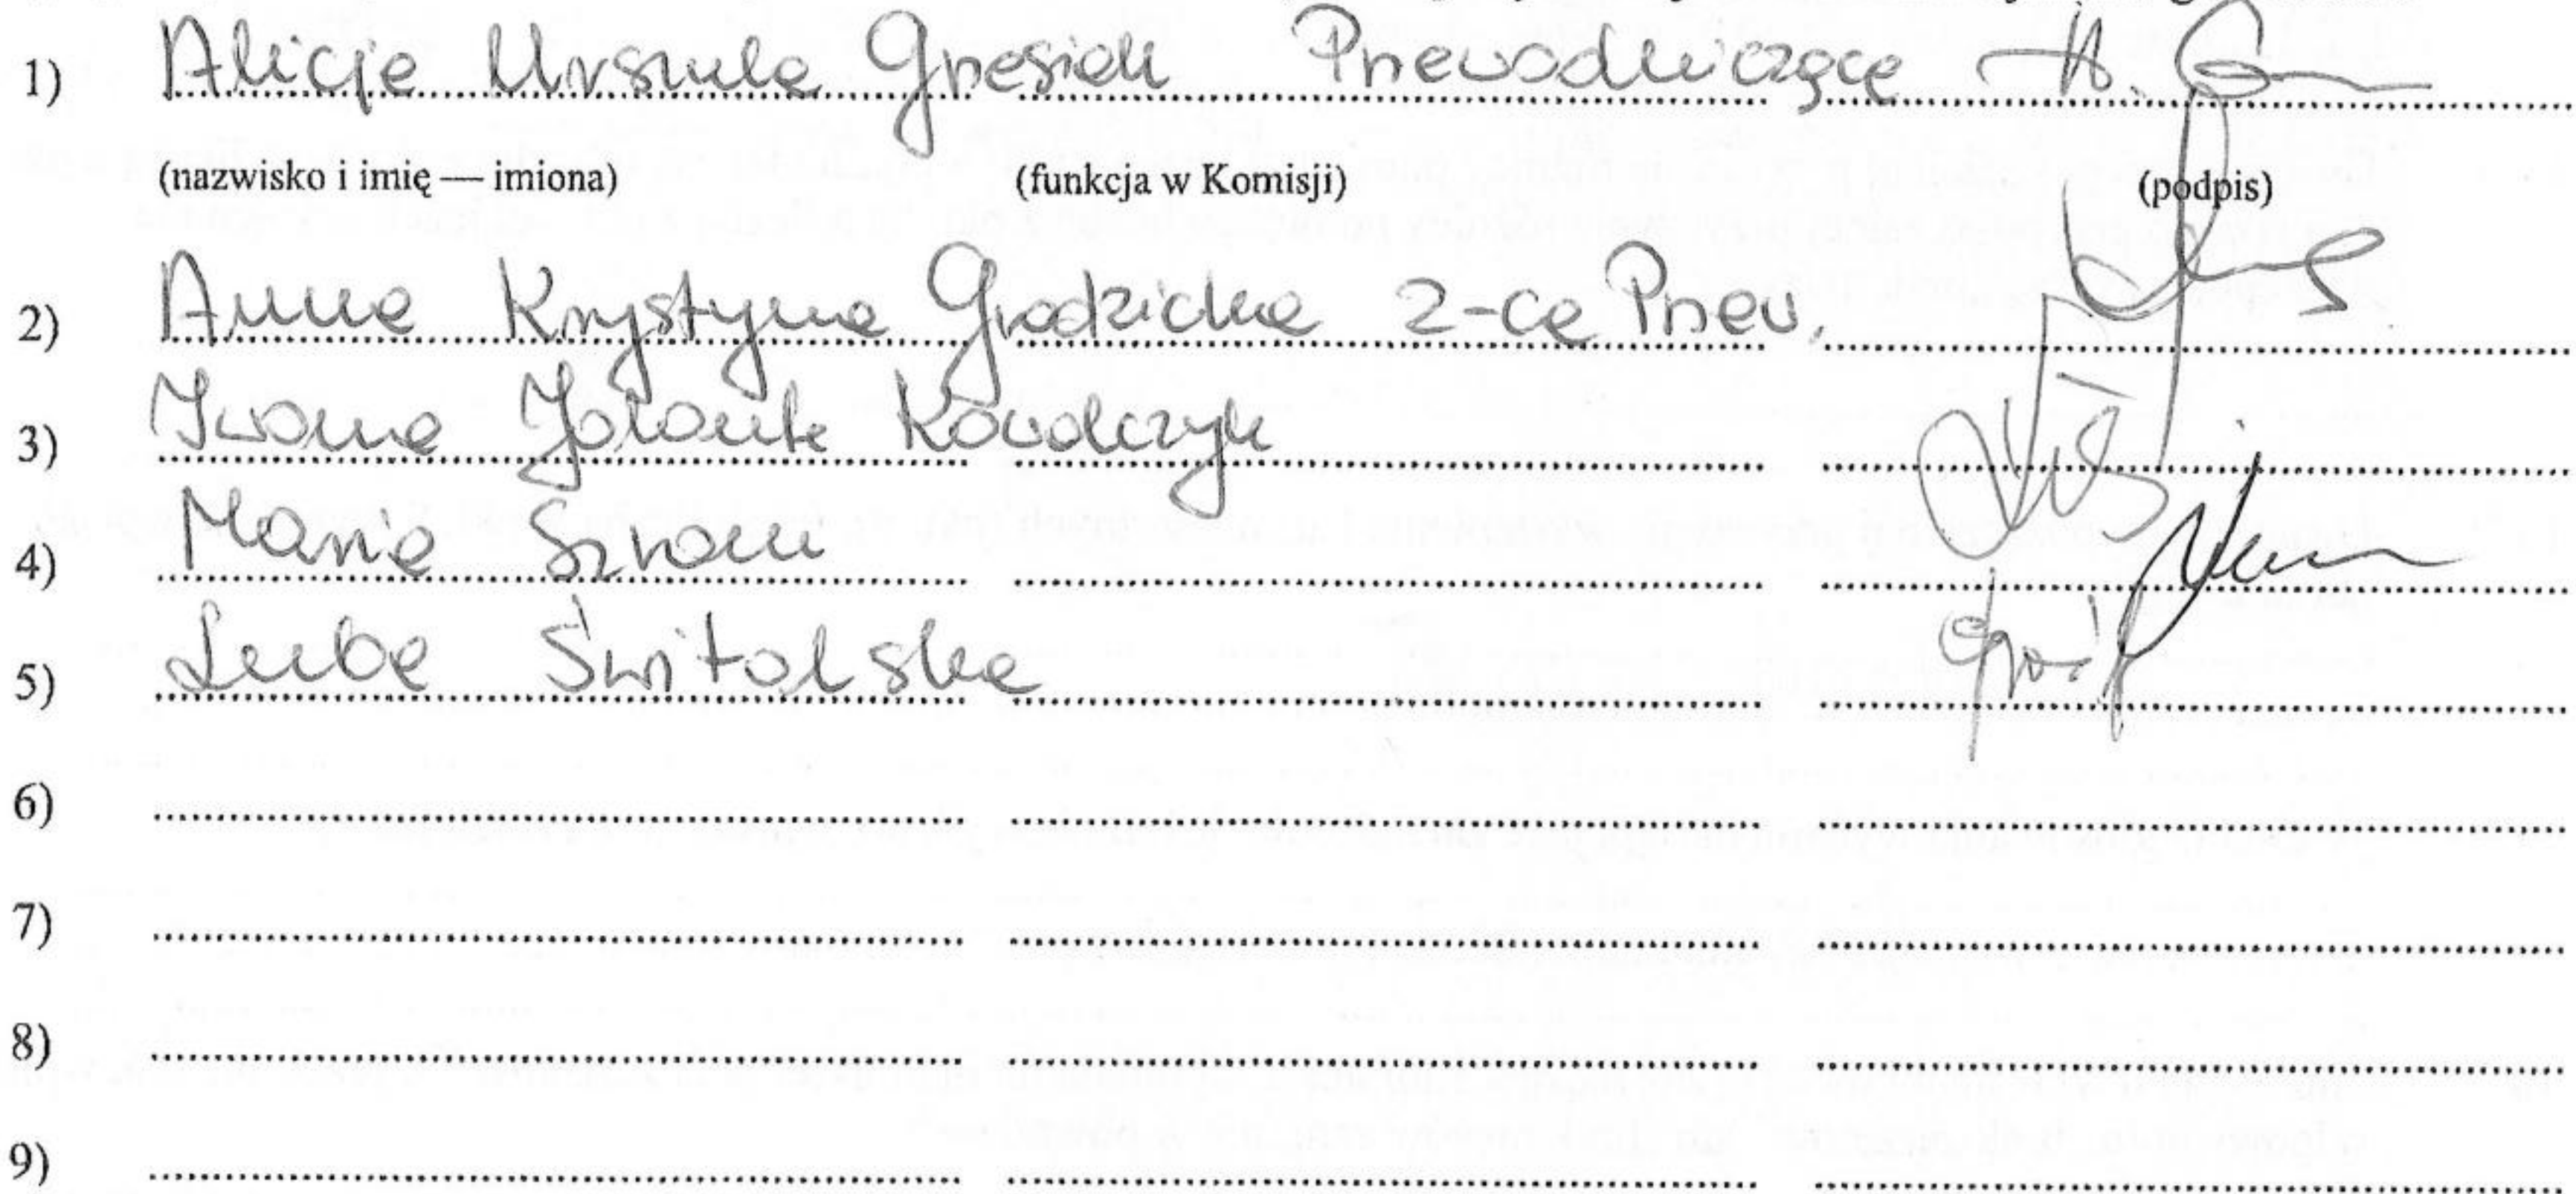 1) Alicja Urszula Grzesiak Przewodnicząca
(nazwisko i imię — imiona) (funkcja w Komisji) (podpis)
2) Anna Krystyna Grodzicka Z-ca Przew.
3) Iwona Jolanta Kowalczyk
4) Maria Szram
5) Luba Świtalska
6)
7)
8)
9)